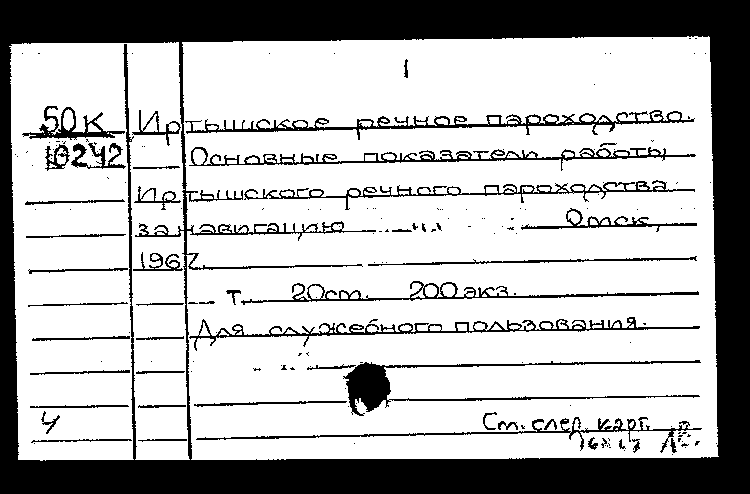 1
50К Иртышское речное пароходство.
10242 Основные показатели работы
Иртышского речного пароходства
за навигацию Омск,
1967.
т. 20см. 200 экз.
Для служебного пользования.
4 См. след. карт.